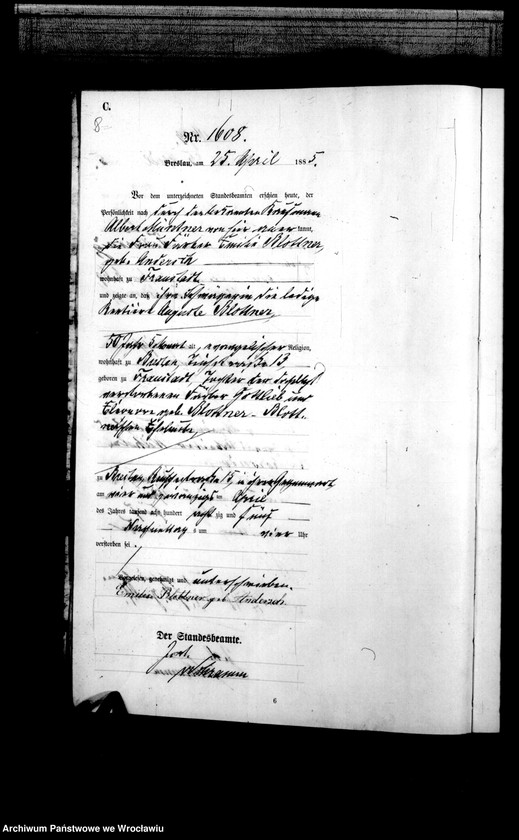 C.
8
Nr. 1608.
Breslau, am 25. April 1885.
Vor dem unterzeichneten Standesbeamten erschien heute, der
Persönlichkeit nach durch den bekannten Kaufmann
Albert von hier aner kannt,
die Frau Färber Emilie Klottner,
geb. Anderseck
wohnhaft zu Fraustadt
und zeigte an, daß ihre Schwägerin, die ledige
Rentiere Auguste Klottner,
50 Jahr alt, evangelischer Religion,
wohnhaft zu Breslau, 13
geboren zu Fraustadt, Tochter der daselbst
verstorbenen Färber Gottlieb und
geb. Klottner - Klott-
nerschen Eheleute,
zu Breslau, in ihrer Gegenwart
am vier und zwanzigsten April
des Jahres tausend acht hundert acht zig und fünf
Nachmittag s um vier Uhr
verstorben sei.
Vorgelesen, genehmigt und unterschrieben.
Emilie Klottner geb Anderseck.
Der Standesbeamte.
6
Archiwum Państwowe we Wrocławiu